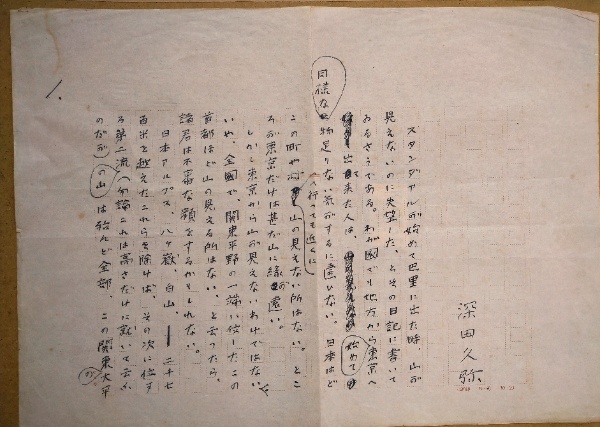 深田久弥
スタンダアルが始めて巴里に出た時、山が
見えないのに失望した、とその日記に書いて
あるさうである。わが國でも地方から東京へ
出て来た人は、始めて
同様な物足りない気がするに違ひない。日本ほど
どこの町や村へ行っても近くに山の見えない所はない。とこ
ろが東京だけは甚だ山に縁が遠い。
しかし東京から山が見えないわけではない。
いや、全國で、関東平野の一端に位したこの
首都ほど山の見える所はない、と云つたら、
諸君は不審な顔をするかもしれない。
日本アルプス、八ヶ嶽、白山、――二千七
百米を越えたこれらを除けば、その次に位す
る第二流(勿論これは高さだけに就いて云ふ
のだが)の山は殆んど全部、この関東太平
1.